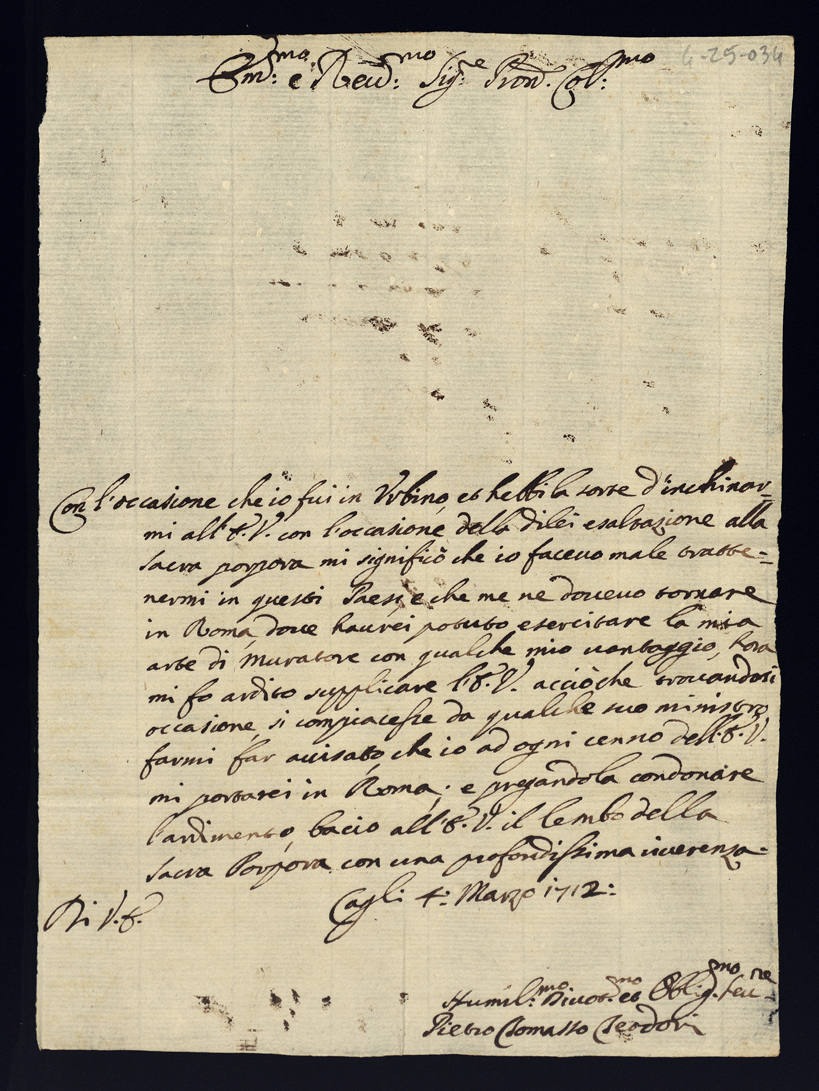 6-25-034
Em:mo e Reud:mo Sig:re Pron. Col:mo
Con l'occasione che io fui in Vrbino, et hebbi la sorte d'inchinar=
mi all'E.V. con l'occasione della dilei esaltazione alla
sacra porpora mi significò che io faceuo male tratte=
nermi in questi Paesi, e che me ne doueuo tornare
in Roma, doue haurei potuto esercitare la mia
arte di Muratore con qualche mio uantaggio, hora
mi fo ardito supplicare l'E.V. acciò che trouandosi
occasione, si compiacesse da qualche suo ministro
farmi far auisato, che io ad ogni cenno dell'E.V.
mi portarei in Roma; e pregandola condonare
l'ardimento, bacio all'E.V. il lembo della
sacra Porpora con una profondissima riuerenza.
Cagli 4: Marzo 1712:
Di V.E.
Humil:mo Diuot:mo et Oblig:mo seru:re
Pietro Tomasso Teodori